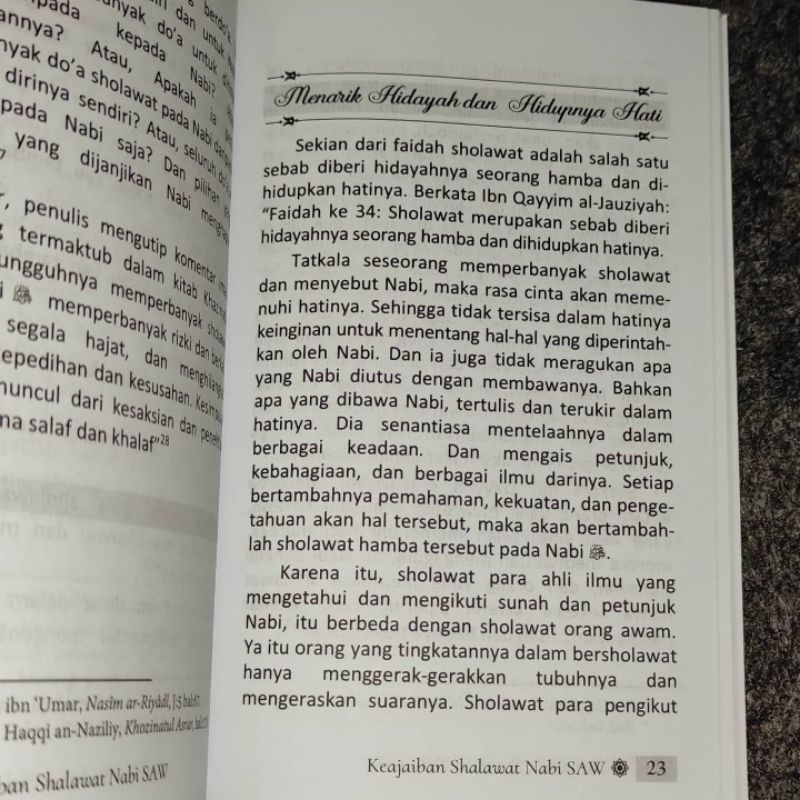 berdo'a
banyak do'a untuk
kepada Nabi?
annya? Atau, Apakah ia
nyak do'a sholawat pada Nabi
dirinya sendiri? Atau, seluruh
pada Nabi saja? Dan pilihan
yang dijanjikan Nabi
penulis mengutip komentar
termaktub dalam kitab
ungguhnya memperbanyak
ﷺ memperbanyak rizki dan
segala hajat, dan
epedihan dan kesusahan.
muncul dari kesaksian dan
ma salaf dan khalaf"²⁸
ibn 'Umar, Nasîm ar-Riyâdl, J-5
Haqqi an-Naziliy, Khozinatul Asrar,
ban Shalawat Nabi SAW
Menarik Hidayah dan Hidupnya Hati
Sekian dari faidah sholawat adalah salah satu
sebab diberi hidayahnya seorang hamba dan di-
hidupkan hatinya. Berkata Ibn Qayyim al-Jauziyah:
"Faidah ke 34: Sholawat merupakan sebab diberi
hidayahnya seorang hamba dan dihidupkan hatinya.
Tatkala seseorang memperbanyak sholawat
dan menyebut Nabi, maka rasa cinta akan meme-
nuhi hatinya. Sehingga tidak tersisa dalam hatinya
keinginan untuk menentang hal-hal yang diperintah-
kan oleh Nabi. Dan ia juga tidak meragukan apa
yang Nabi diutus dengan membawanya. Bahkan
apa yang dibawa Nabi, tertulis dan terukir dalam
hatinya. Dia senantiasa mentelaahnya dalam
berbagai keadaan. Dan mengais petunjuk,
kebahagiaan, dan berbagai ilmu darinya. Setiap
bertambahnya pemahaman, kekuatan, dan penge-
tahuan akan hal tersebut, maka akan bertambah-
lah sholawat hamba tersebut pada Nabi ﷺ.
Karena itu, sholawat para ahli ilmu yang
mengetahui dan mengikuti sunah dan petunjuk
Nabi, itu berbeda dengan sholawat orang awam.
Ya itu orang yang tingkatannya dalam bersholawat
hanya menggerak-gerakkan tubuhnya dan
mengeraskan suaranya. Sholawat para pengikut
Keajaiban Shalawat Nabi SAW 23